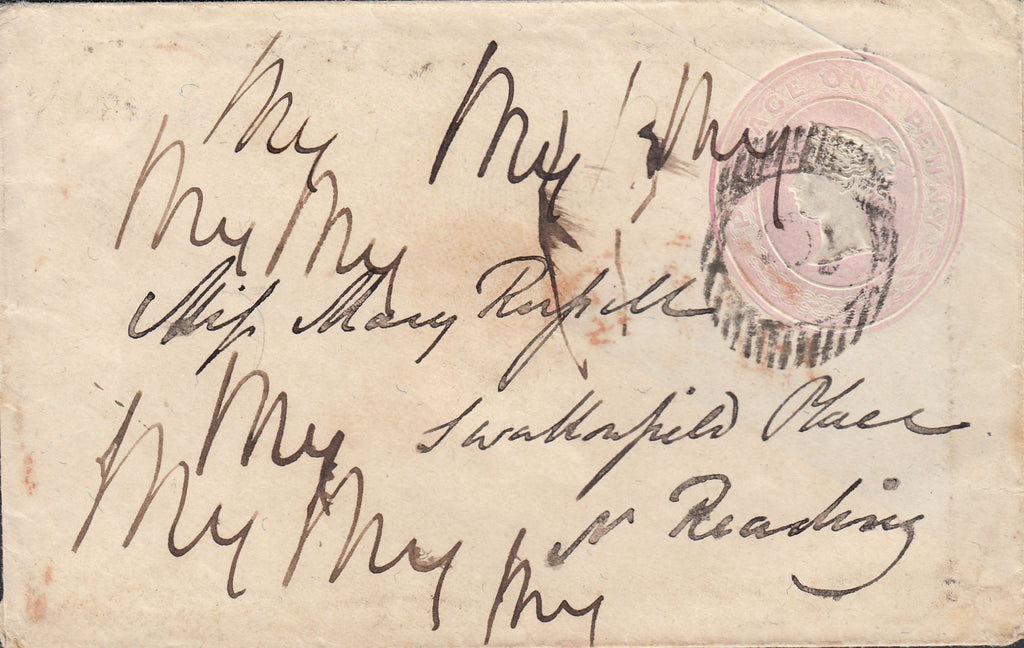 POSTAGE ONE PENNY
My My My
My My
Miss Mary Russell
My Swallowfield Place
My My Nr Reading
My